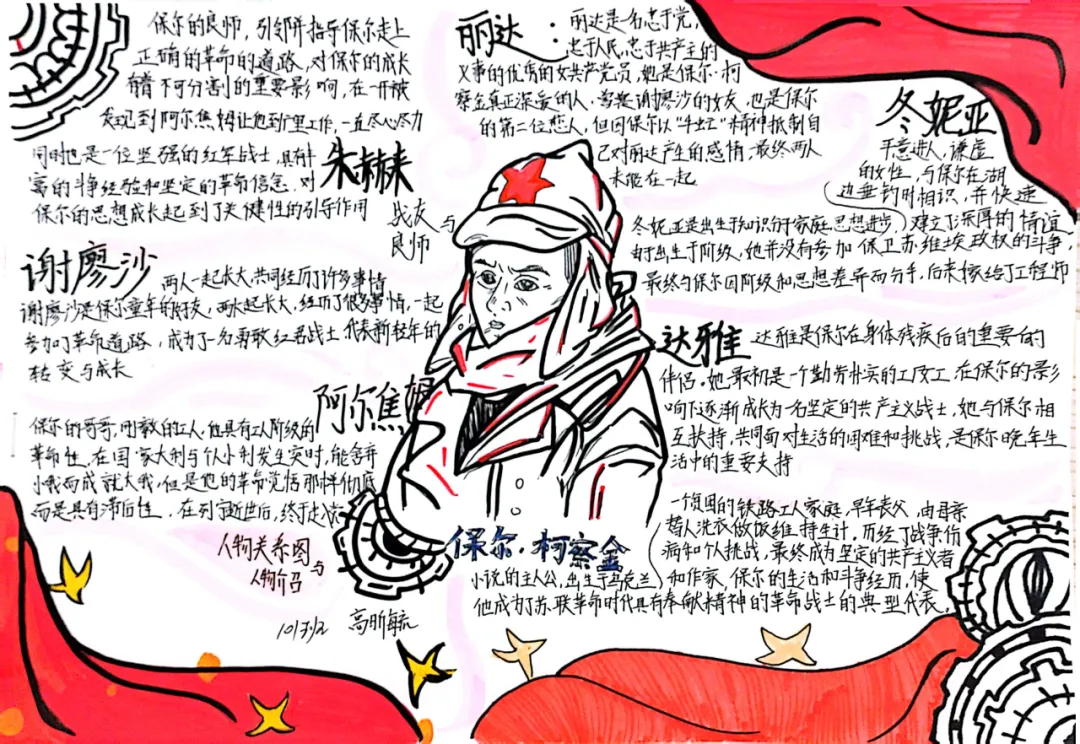 保尔的良师，引领并指导保尔走上
正确的革命的道路，对保尔的成长
有着不可分割的重要影响，在一开被
发现到阿尔焦姆让他到厂里工作，一直尽心尽力
同时也是一位坚强的红军战士，具有丰
富的斗争经验和坚定的革命信念，对
保尔的思想成长起到了关键性的引导作用
朱赫来
战友与
良师
丽达：
丽达是一名忠于党，
忠于人民，忠于共产主的
义事的优秀的女共产党员，她是保尔·柯
察金真正深爱的人，曾是谢廖沙的女友，也是保尔
的第二位恋人，但因保尔以“牛虻”精神抵制自
己对丽达产生的感情，最终两人
未能在一起
冬妮亚
干意进人，谦虚
的女性，与保尔在湖
边垂钓时相识，并快速
建立了深厚的情谊
冬妮亚是出生于知识分子家庭，思想进步
由于出生于阶级，她并没有参加保卫苏维埃政权的斗争
最终与保尔因阶级和思想差异而分手，后来嫁给了工程师
谢廖沙
两人一起长大，共同经历了许多事情
谢廖沙是保尔童年的好友，两人一起长大，经历了很多事情，一起
参加了革命道路，成为了一名勇敢红军战士，代表新轻年的
转变与成长
达雅
达雅是保尔在身体残疾后的重要的
伴侣，她最初是一个勤劳朴实的工厂女工，在保尔的影
响下逐渐成长为一名坚定的共产主义战士，她与保尔相
互扶持，共同面对生活的困难和挑战，是保尔晚年生
活中的重要支持
阿尔焦姆
保尔的哥哥，刚毅的工人，他具有工人阶级的
革命性，在国家大利与个人小利发生突时，能舍弃
小我而成就大我，但是他的革命觉悟那样彻底
而是具有滞后性，在列宁逝世后，终于
人物关系图
与
人物介召
高昕毓
保尔·柯察金
一个贫困的铁路工人家庭，早年丧父，由母亲
替人洗衣做饭维持生计，而经了战争伤
病和个人挑战，最终成为坚定的共产主义者
和作家，保尔的生活和斗争经历，使
小说的主人公，出生于乌克兰
他成为了苏联革命时代具有奉献精神的革命战士的典型代表，